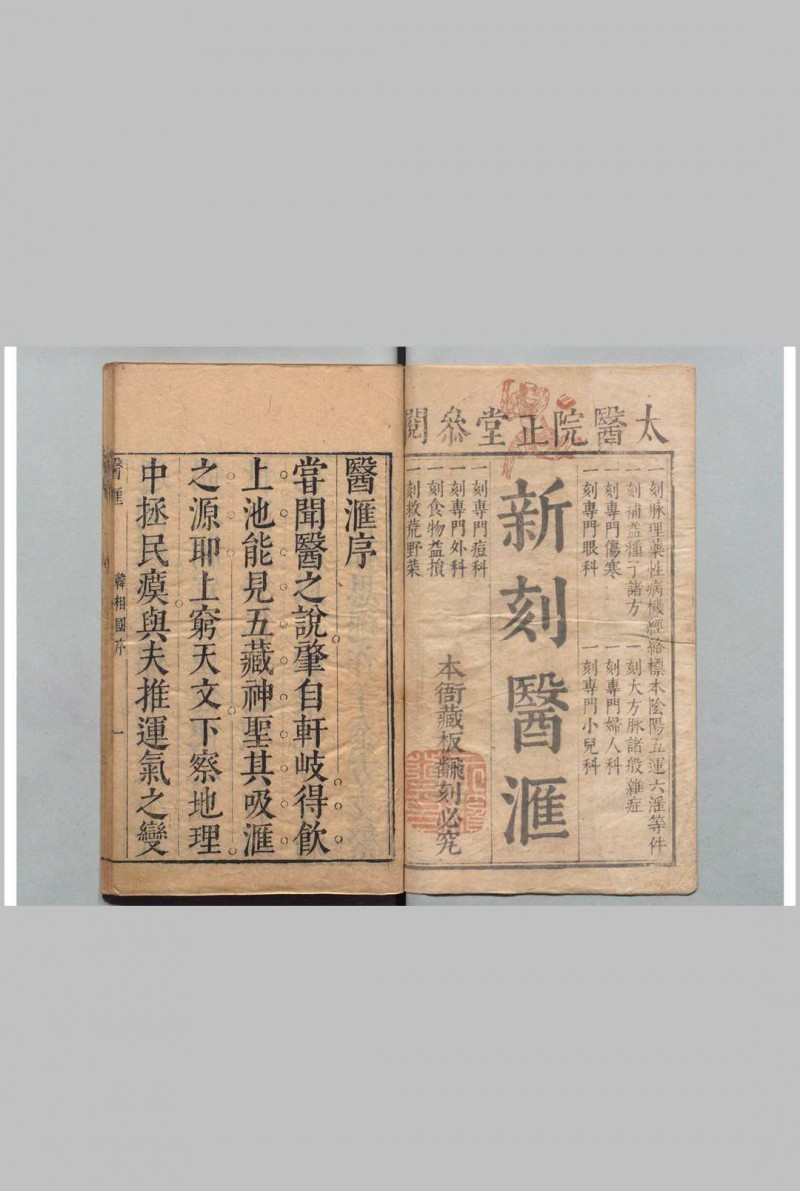 太醫院正堂叅閱
一刻脉理藥性病機經絡標本陰陽五運六淫等件
一刻補益種子諸方
一刻大方脉諸般雜症
一刻專門傷寒
一刻專門婦人科
一刻專門眼科
一刻專門小兒科
新刻醫滙
一刻專門痘科
一刻專門外科
一刻食物益損
一刻救荒野菜
本衙藏板翻刻必究
醫滙序
甞聞醫之說肇自軒岐得飲
上池能見五藏神聖其吸滙
之源耶上窮天文下察地理
中拯民瘼與夫推運氣之變
醫滙
韓相國序
一